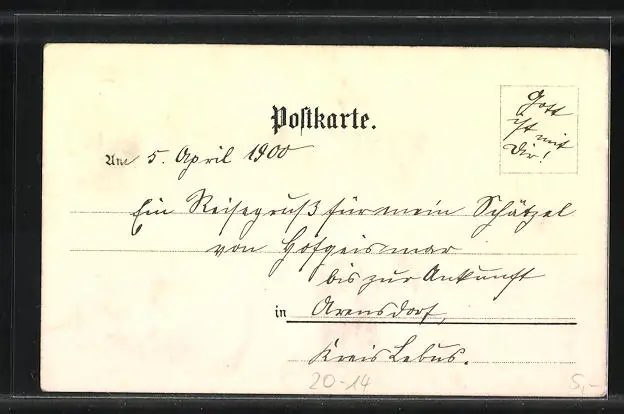 Postkarte.
Gott
ist mit
Dir!
An 5. April 1900
Ein Reisegruß für mein Schätzel
von Hofgeismar
bis zur Ankunft
in Arensdorf,
Kreis Lebus.
20-14
5,-